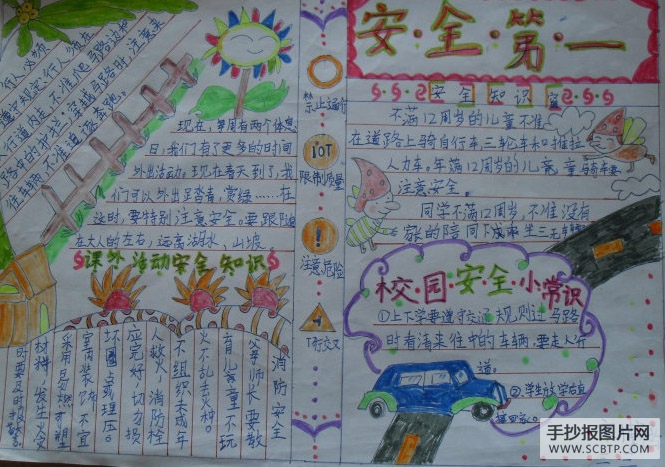 安·全·第·一
安全知识篇
不满12周岁的儿童不准
在道路上骑自行车、三轮车和推拉
人力车。年满12周岁的儿童,骑车要
注意安全。
同学不满12周岁,不准没有
家的陪同下
校·园·安全·小常识
①上下学要遵守交通规则过马路
时看清来往中的车辆,要走人行
道。
②学生放学后
行人必须
遵守规定:行人须在
行道内走,不准爬马路边和
路中的护栏;穿越马路时,注意来
往车辆,不准追逐奔跑。
现在,每周有两个休息
日,我们有了更多的时间
外出活动。现在春天到了,我
们可以外出踏青,赏绿……在
这时,要特别注意安全。要跟随
在大人的左右,远离湖水,山坡。
课外活动安全知识
禁止通行
10T
限制质量
注意危险
T形交叉
消防安全
父辈师长要教
育儿童不玩
火不乱丢火种。
不组织未成年
人救火,消防栓
应完好,切勿损
坏圈占埋压。
室内装饰不宜
采用易燃可塑
材料,发生火灾
时要及时报警
手抄报图片网
WWW.SCBTP.COM